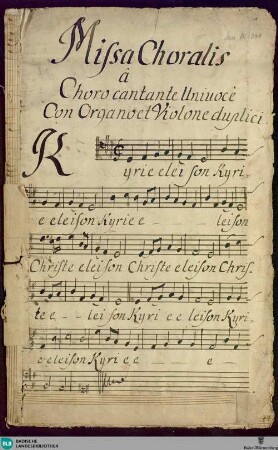 Missa Choralis
â
Choro cantante Univocè
Con Organo et Violone duplici
Kyrie elei son Kyri
e eleison Kyrie e - - leison
Christe eleison Christe eleison Chris,
te e - - lei son Kyri e e leison Kyri,
e eleison Kyri e e - - - e
BLB BADISCHE
LANDESBIBLIOTHEK
Baden-Württemberg